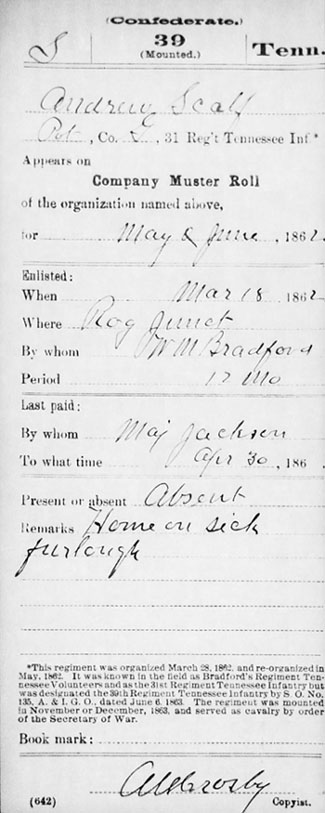 (Confederate.)
S 39 Tenn.
(Mounted.)
Andrew Scalf
Pvt, Co. I, 31 Reg't Tennessee Inf*
Appears on
Company Muster Roll
of the organization named above,
for May & June, 1862.
Enlisted:
When Mar 18 1862
Where Rog Junct
By whom W M Bradford
Period 12 Mo
Last paid:
By whom Maj Jackson
To what time Apr 30, 186 .
Present or absent Absent
Remarks Home on sick
furlough
*This regiment was organized March 28, 1862, and re-organized in
May, 1862. It was known in the field as Bradford's Regiment Ten-
nessee Volunteers and as the 31st Regiment Tennessee Infantry but
was designated the 39th Regiment Tennessee Infantry by S. O. No.
135, A. & I. G. O., dated June 6, 1863. The regiment was mounted
in November or December, 1863, and served as cavalry by order
of the Secretary of War.
Book mark:
Crosby
(642) Copyist.